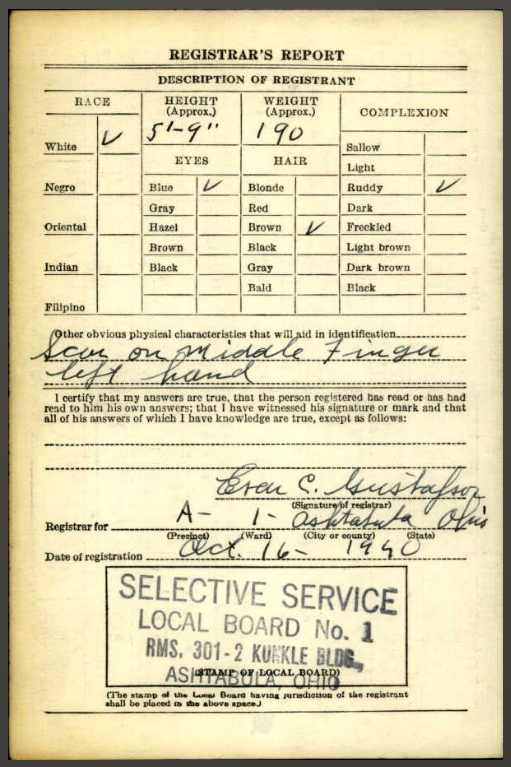 REGISTRAR'S REPORT
DESCRIPTION OF REGISTRANT
RACE
HEIGHT (Approx.)
WEIGHT (Approx.)
COMPLEXION
5'-9"
190
White ✓
EYES
HAIR
Sallow
Light
Negro
Blue ✓
Blonde
Ruddy ✓
Gray
Red
Dark
Oriental
Hazel
Brown ✓
Freckled
Brown
Black
Light brown
Indian
Black
Gray
Dark brown
Bald
Black
Filipino
Other obvious physical characteristics that will aid in identification
Scar on Middle Finger
left hand
I certify that my answers are true, that the person registered has read or has had
read to him his own answers; that I have witnessed his signature or mark and that
all of his answers of which I have knowledge are true, except as follows:
C. Gustafson
(Signature of registrar)
Registrar for A- 1- Ashtabula Ohio
(Precinct) (Ward) (City or county) (State)
Date of registration Oct. 16- 1940
SELECTIVE SERVICE
LOCAL BOARD No. 1
RMS. 301-2 KUNKLE BLDG.
ASHTABULA, OHIO
(STAMP OF LOCAL BOARD)
(The stamp of the Local Board having jurisdiction of the registrant
shall be placed in the above space.)